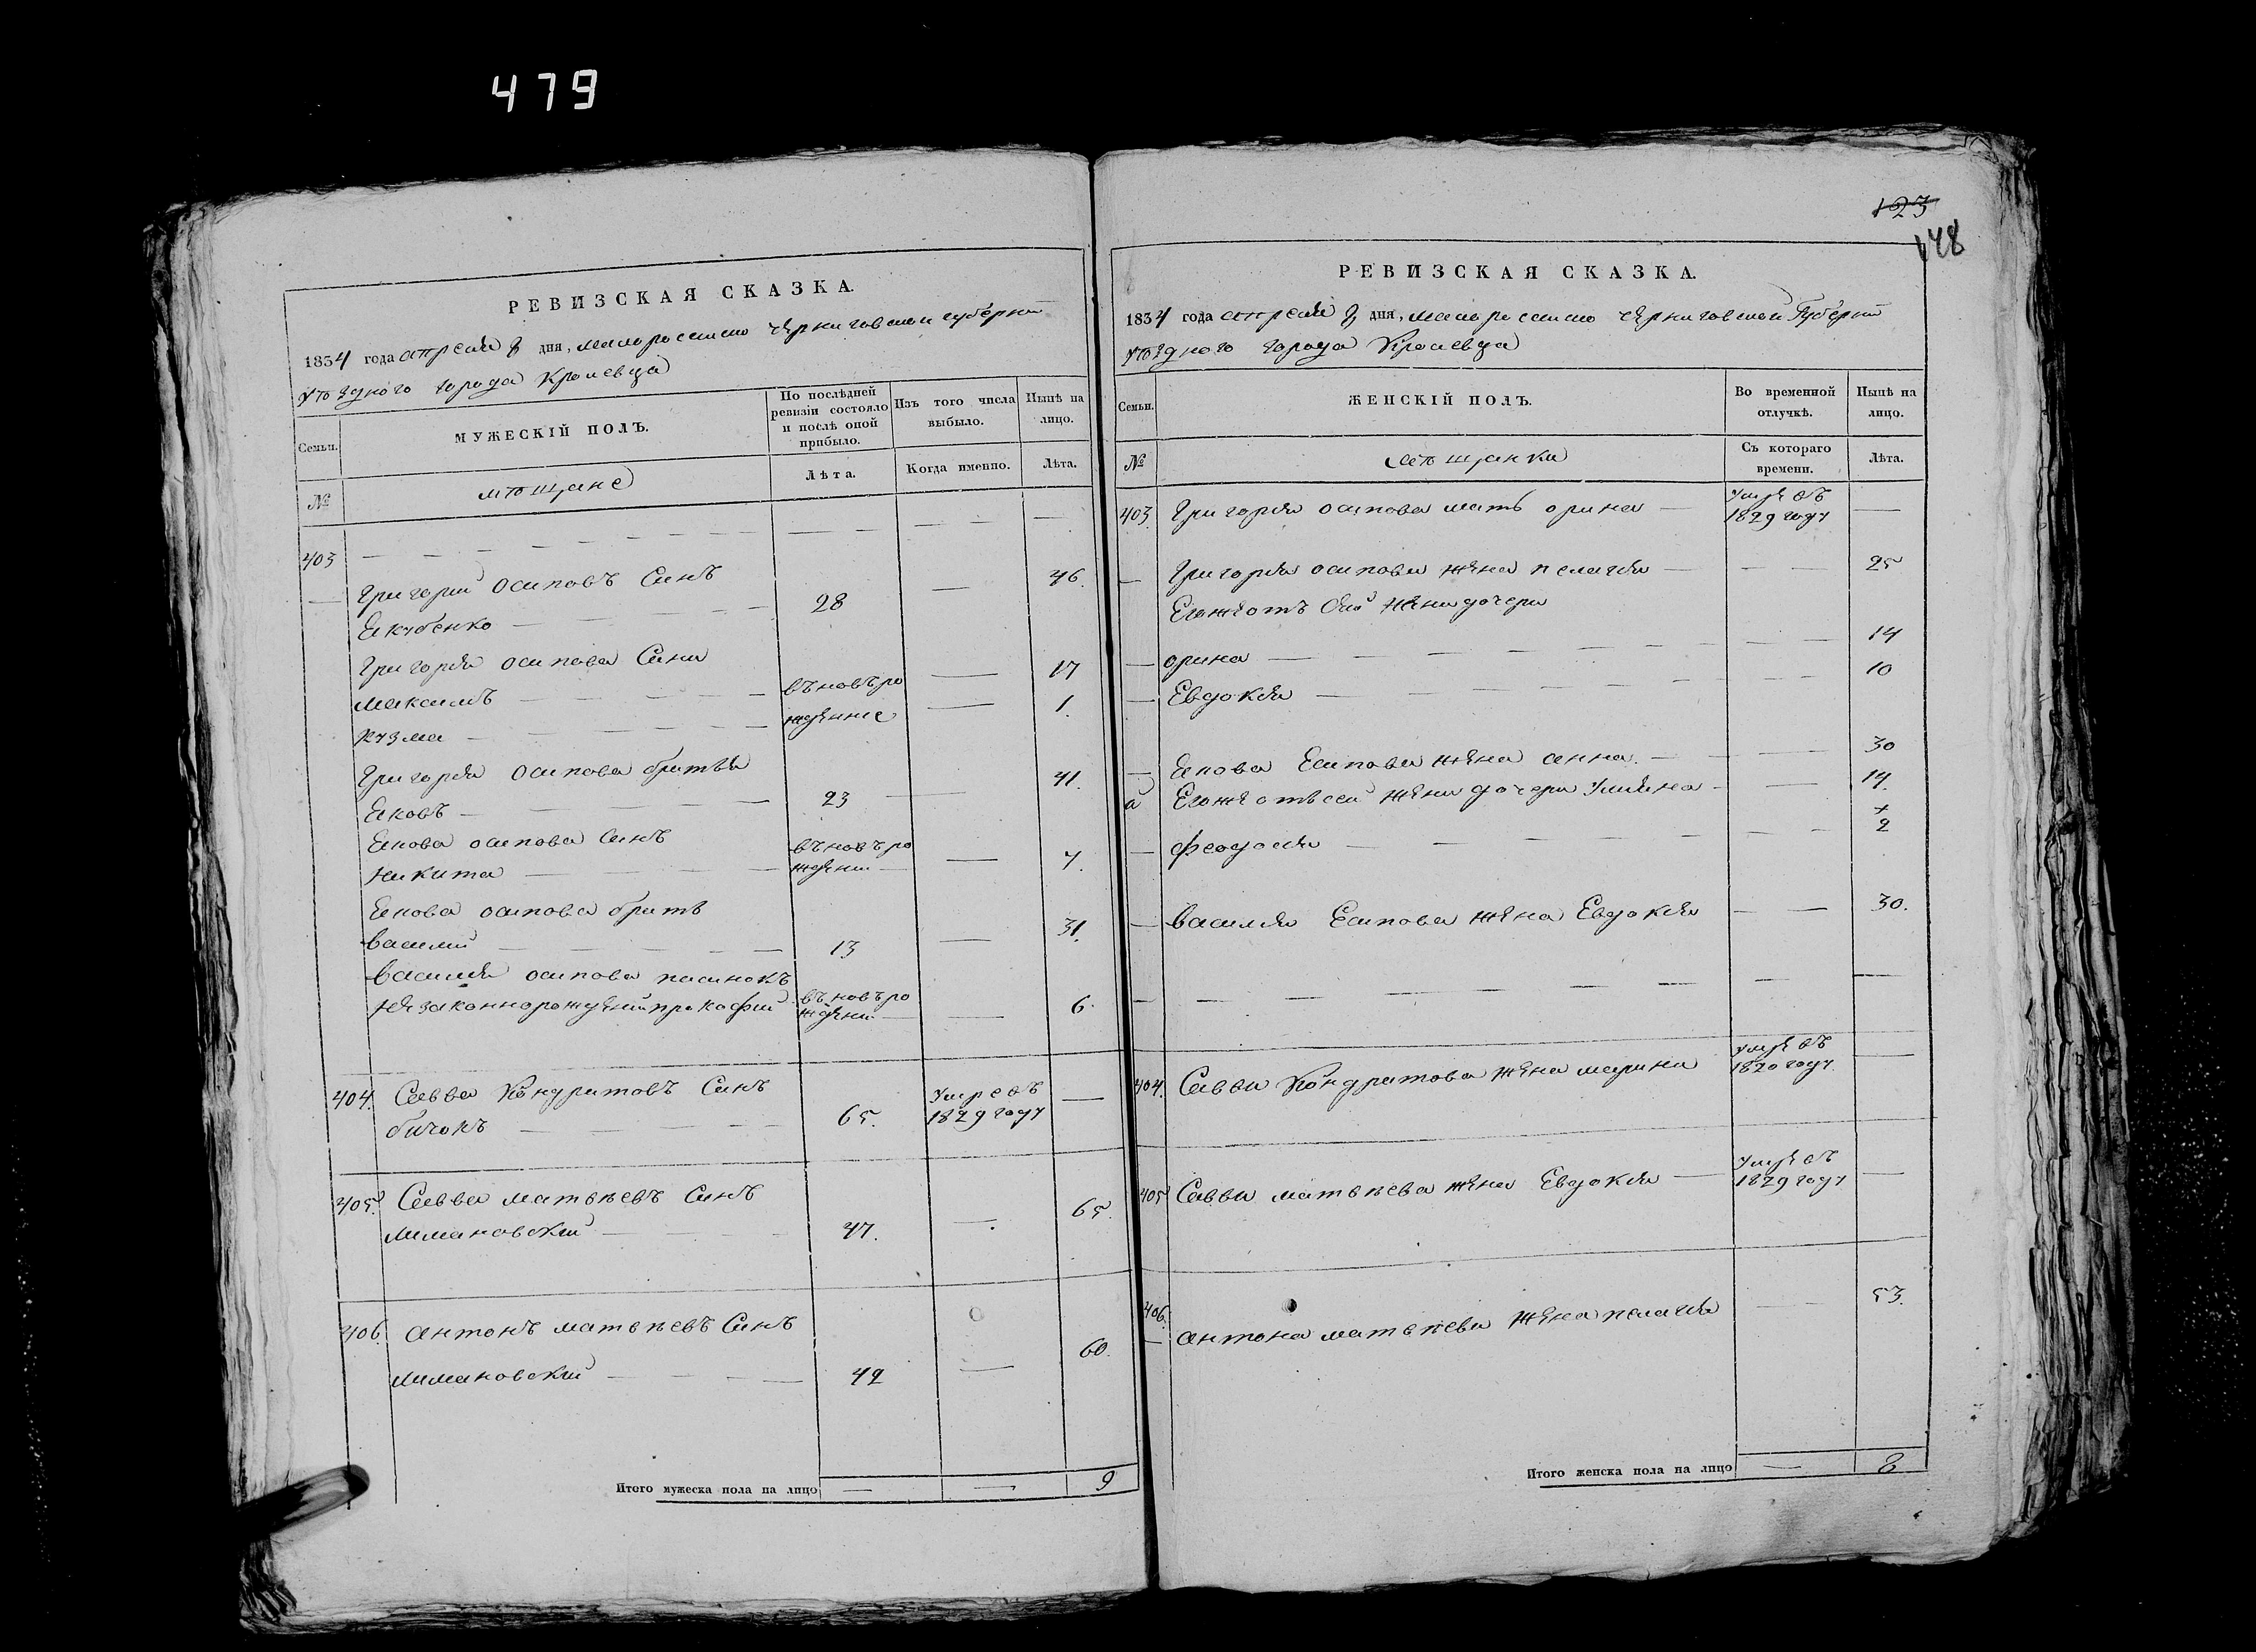 479
РЕВИЗСКАЯ СКАЗКА.
1834 года апреля дня, малороссийско черниговской губернии
уъздного города Кролевца
Семьи.
МУЖЕСКІЙ ПОЛЪ.
По послѣдней ревизіи состояло и послѣ оной прибыло.
Изъ того числа выбыло.
Нынѣ на лицо.
№
мѣщане
Лѣта.
Когда именно.
Лѣта.
403
Григорий Осиповъ Синъ
Якубенко 28 46.
Григория осипова Сини
максимъ въновъро 17
кузма ждение 1.
Григория Осипова братья
Яковъ 23 41.
Якова осипова Синъ
Никита въновъро ждении 7.
Якова осипова братъ
Василий 13 31.
Василия осипова пасинокъ
незаконнорожденийпрокофий въновъро ждении 6.
404. Савва Кондратовъ Синъ
бичокъ 65. Умре въ 1829 году
405. Савва матвѣевъ Синъ
Лимановский 47. 65.
406 антонъ матвѣевъ Синъ
Лимановский 42 60.
Итого мужеска пола на лицо 9
123
148
РЕВИЗСКАЯ СКАЗКА.
1834 года апреля дня, малороссийско черниговской Губернии
уъздного города Кролевца
Семьи.
ЖЕНСКІЙ ПОЛЪ.
Во временной отлучкѣ.
Нынѣ на лицо.
№
мѣщанки
Съ котораго времени.
Лѣта.
403. Григория осипова мать орина Умре въ 1829 году
Григория осипова жена пелагея 25
Егожеотъ жени дочери
орина 14
Евдокия 10
Якова Есипова жена анна. 30
Егоже жени дочери Улияна 14.
+
феодосия 2
Василия Есипова жена Евдокия 30.
404. Савви Кондратова жена марина умре въ 1820 году
405 Савви матвѣева жена Евдокия Умре въ 1829 году
406. антона матвѣева жена пелагея 53.
Итого женска пола на лицо 8